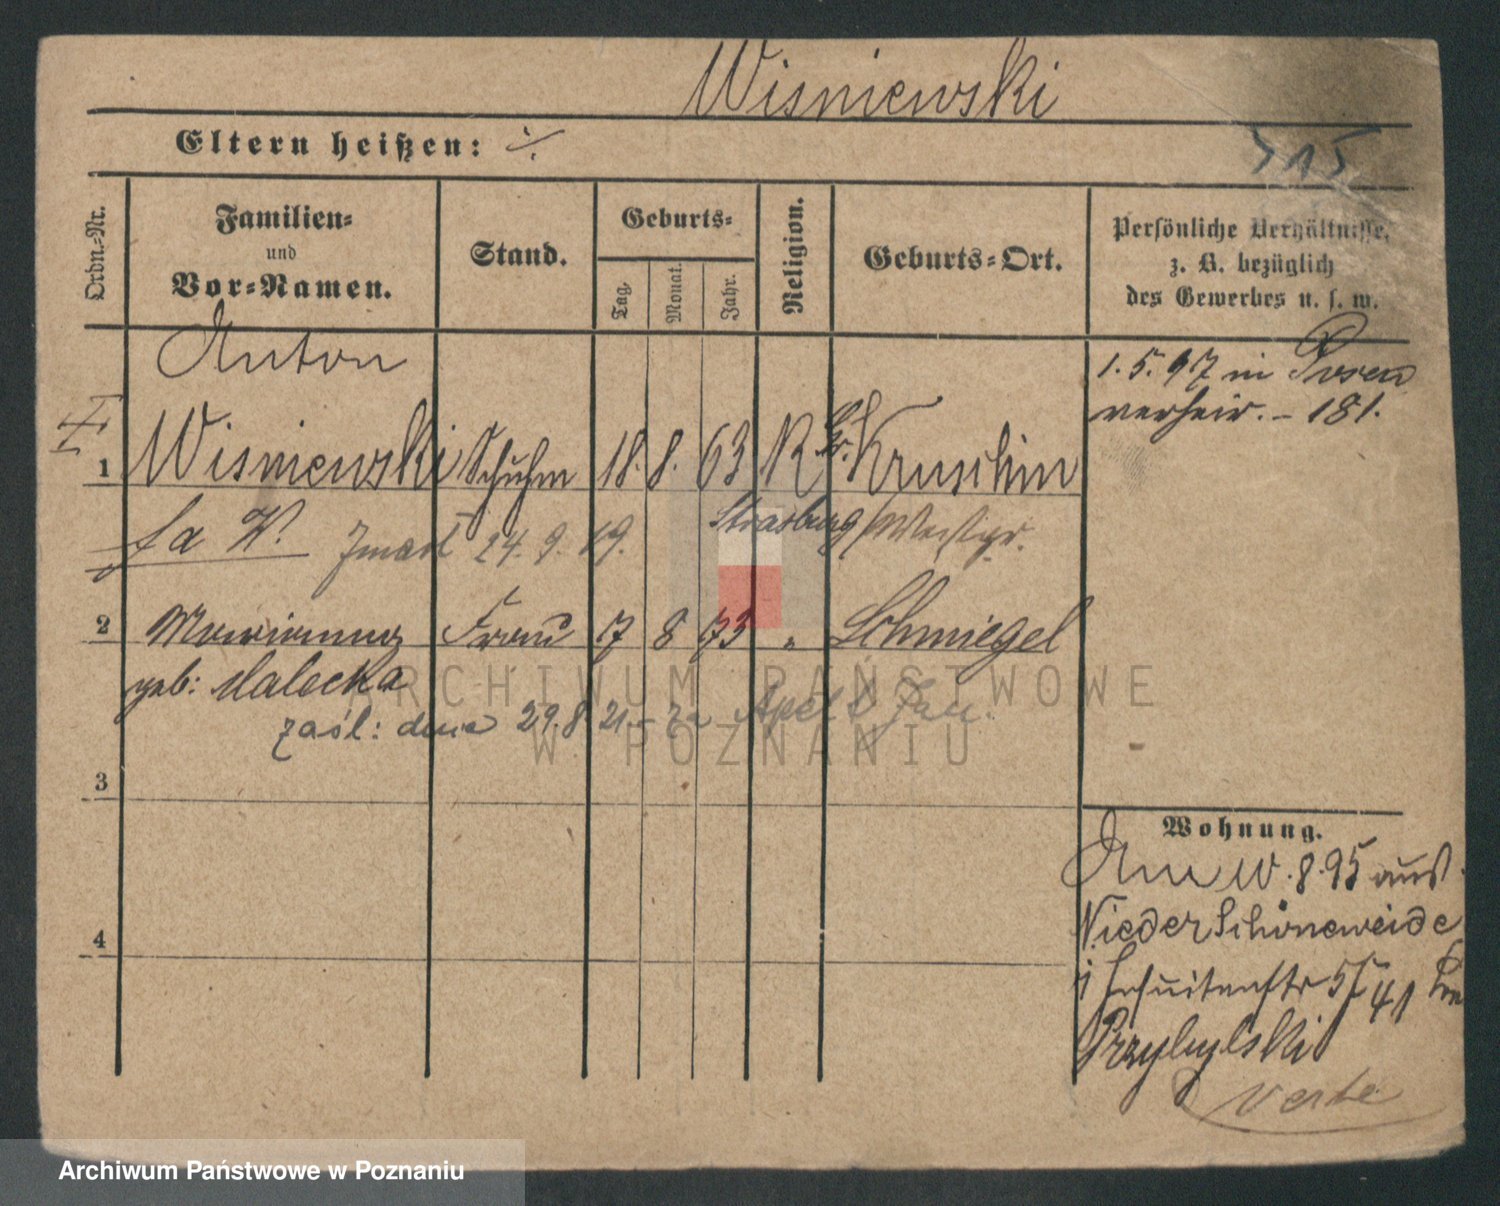 Wisniewski
Eltern heißen: ./.
515
Ordn.-Nr.
Familien-
und
Vor-Namen.
Stand.
Geburts-
Tag.
Monat.
Jahr.
Religion.
Geburts-Ort.
Persönliche Verhältnisse,
z. B. bezüglich
des Gewerbes u. s. w.
Anton
1 Wisniewski Schuhm 18. 8. 63 K Gr. Kruschin
Zmarł 24. 9. 19. Strasburg/Westpr.
1. 5. 97 in Posen
verheir. - 181.
2 Marianna Frau 7 8 73 " Schmiegel
geb: Malecka
zaśl: dnia 29.8 21 - za Jan.
3
4
Wohnung.
8.95 aus
Nieder Schöneweide
Jesuitenstr 5
Przybylski
verte
ARCHIWUM PAŃSTWOWE
W POZNANIU
Archiwum Państwowe w Poznaniu